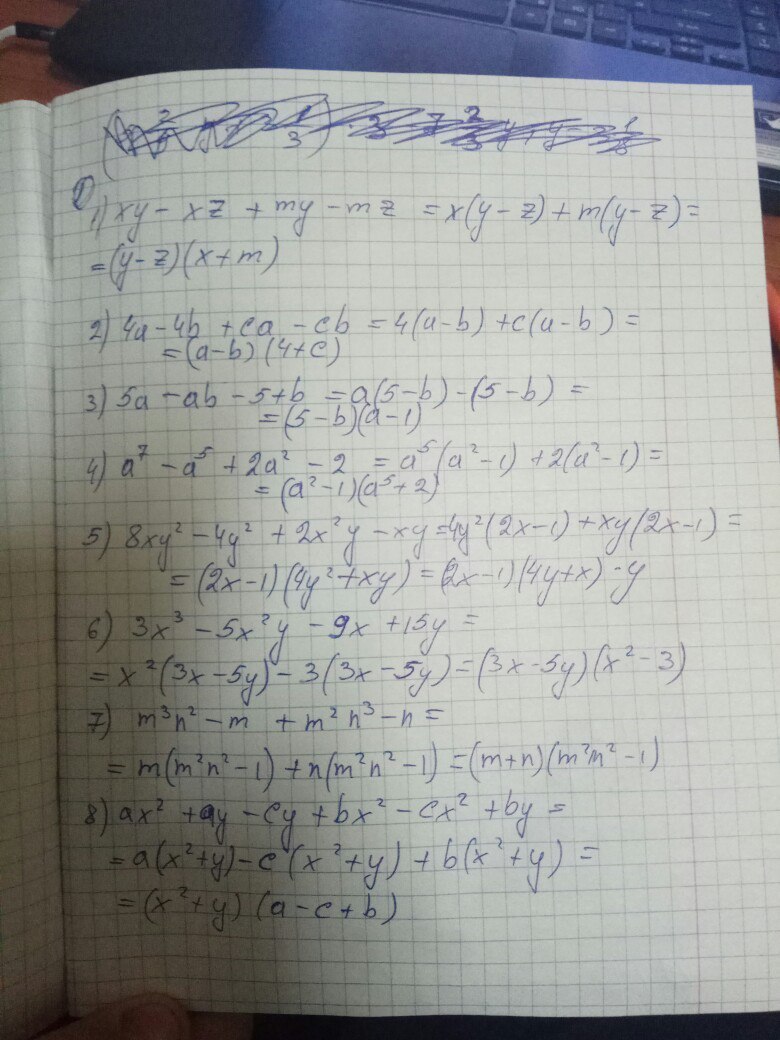 1) 1) xy - xz + my - mz = x(y - z) + m(y - z) =
= (y - z)(x + m)
2) 4a - 4b + ca - cb = 4(a - b) + c(a - b) =
= (a - b)(4 + c)
3) 5a - ab - 5 + b = a(5 - b) - (5 - b) =
= (5 - b)(a - 1)
4) a⁷ - a⁵ + 2a² - 2 = a⁵(a² - 1) + 2(a² - 1) =
= (a² - 1)(a⁵ + 2)
5) 8xy² - 4y² + 2x²y - xy = 4y²(2x - 1) + xy(2x - 1) =
= (2x - 1)(4y² + xy) = (2x - 1)(4y + x) · y
6) 3x³ - 5x²y - 9x + 15y =
= x²(3x - 5y) - 3(3x - 5y) = (3x - 5y)(x² - 3)
7) m³n² - m + m²n³ - n =
= m(m²n² - 1) + n(m²n² - 1) = (m + n)(m²n² - 1)
8) ax² + ay - cy + bx² - cx² + by =
= a(x² + y) - c(x² + y) + b(x² + y) =
= (x² + y)(a - c + b)